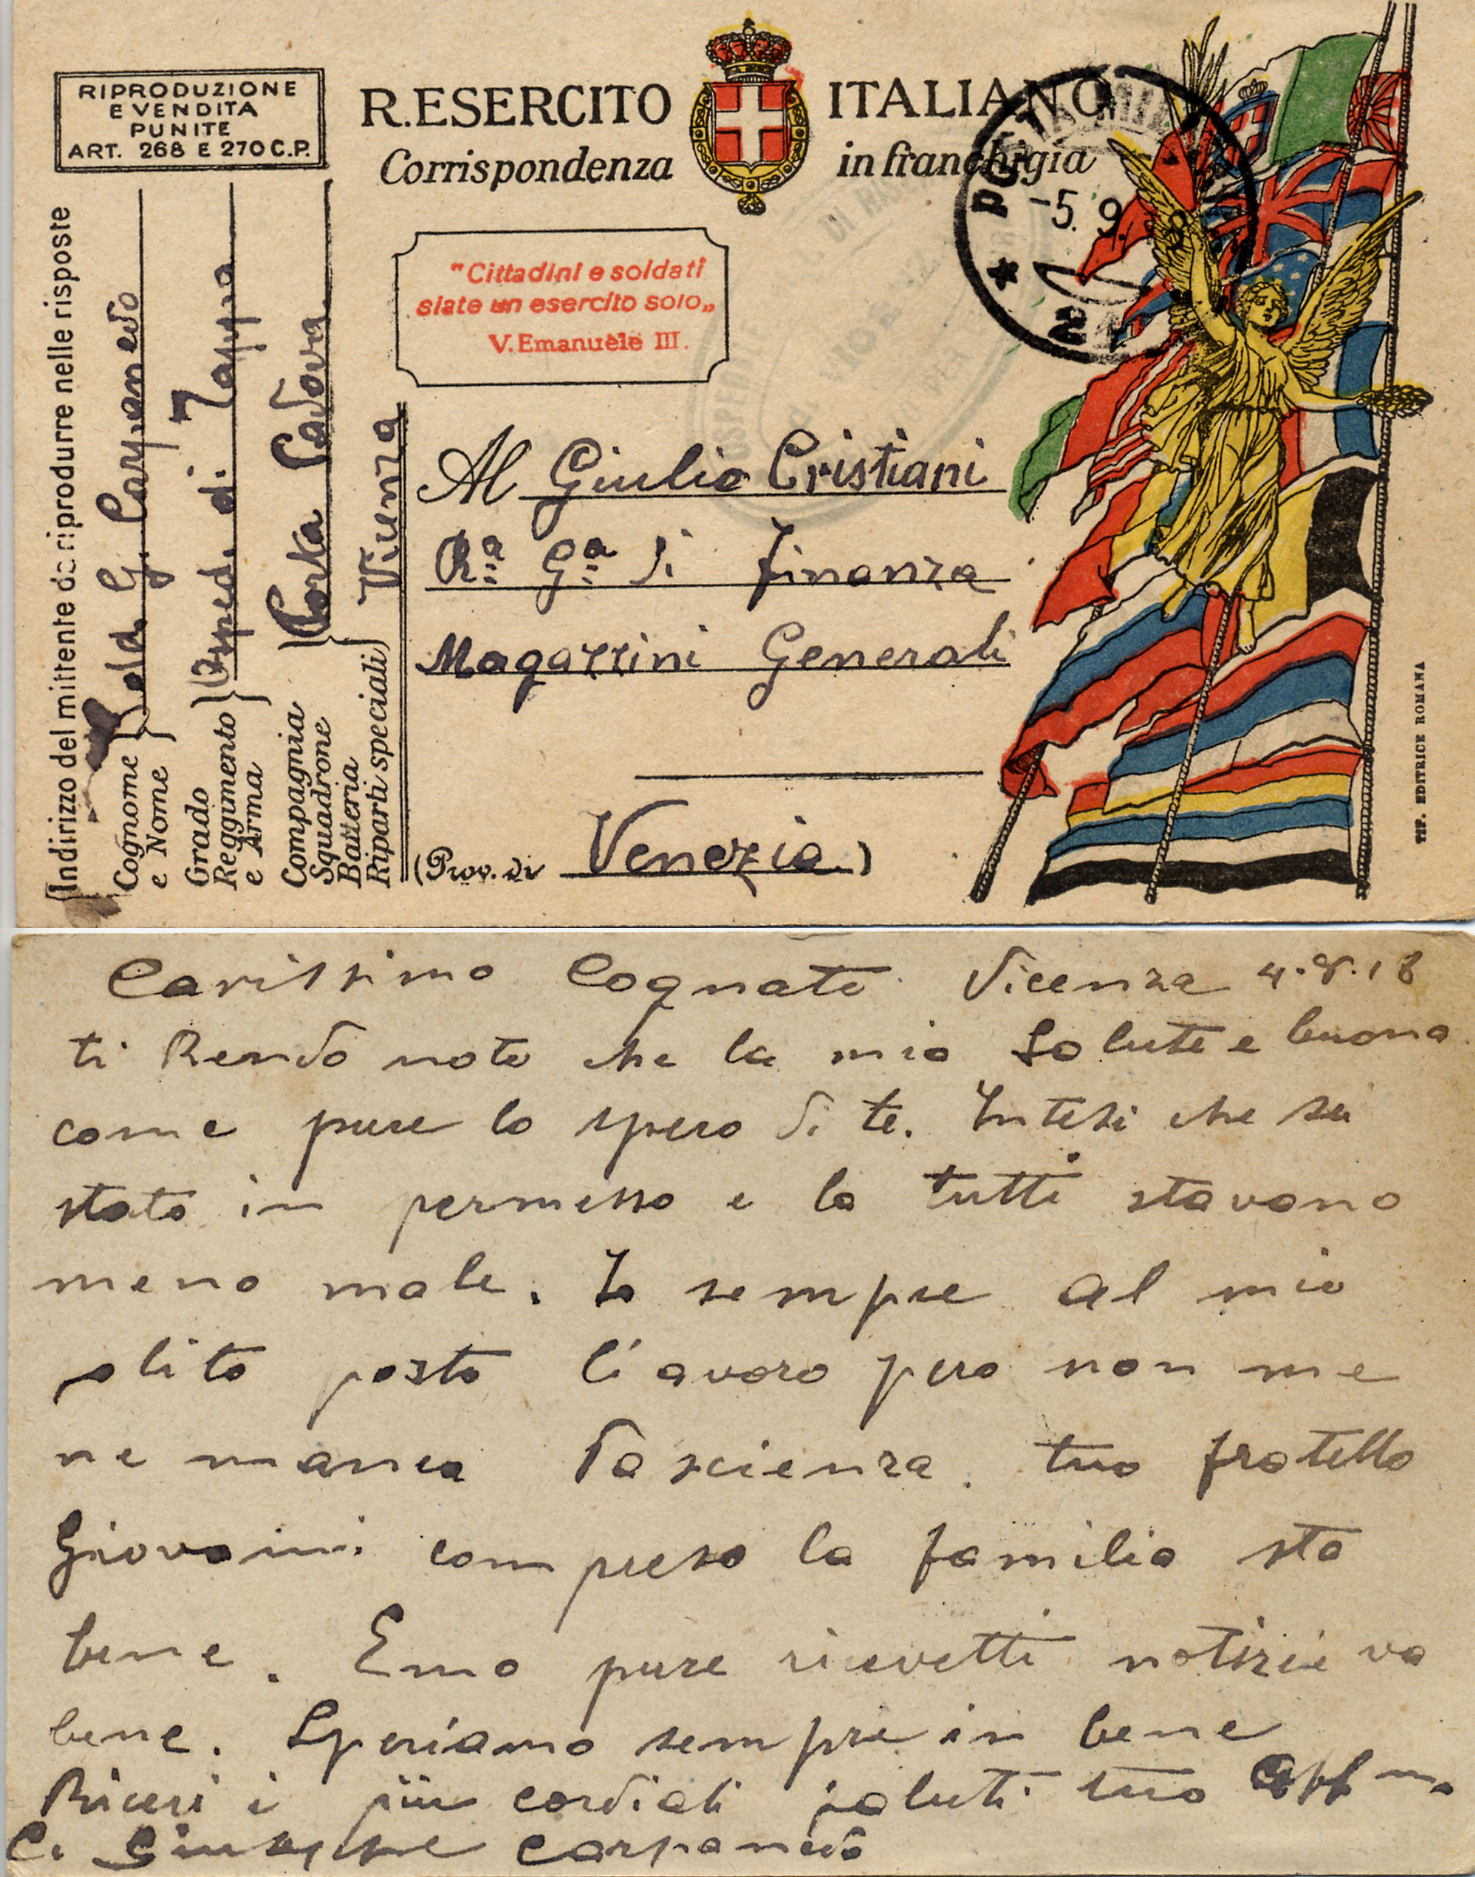 RIPRODUZIONE
E VENDITA
PUNITE
ART. 268 E 270 C.P.
R. ESERCITO ITALIANO
Corrispondenza in franchigia
"Cittadini e soldati
siate un esercito solo„
V. Emanuele III.
POSTA MILITARE
-5. 9. 18
Indirizzo del mittente da riprodurre nelle risposte
Cognome e Nome } Sold. G. Carpanedo
Grado Reggimento e Arma } Osped. di Tappa
Compagnia Squadrone Batteria Riparti speciali } Porta Padova
Vicenza
Al Giulio Cristiani
Ra: Ga: di Finanza
Magazzini Generali
(Prov. di Venezia)
TIP. EDITRICE ROMANA
Carissimo Cognato Vicenza 4.9.18
ti Rendo noto che la mia Salute e buona
come pure lo spero di te. Intesi che sei
stato in permesso e la tutti stavano
meno male. Io sempre al mio
solito posto lavoro pero non me
ne manca tuo fratello
Giovanni compreso la familia sta
bene. Emo pure ricevetti notizie va
bene. Speriamo sempre in bene
Ricevi i più cordiali saluti tuo aff mo
C. Giuseppe Carpanedo